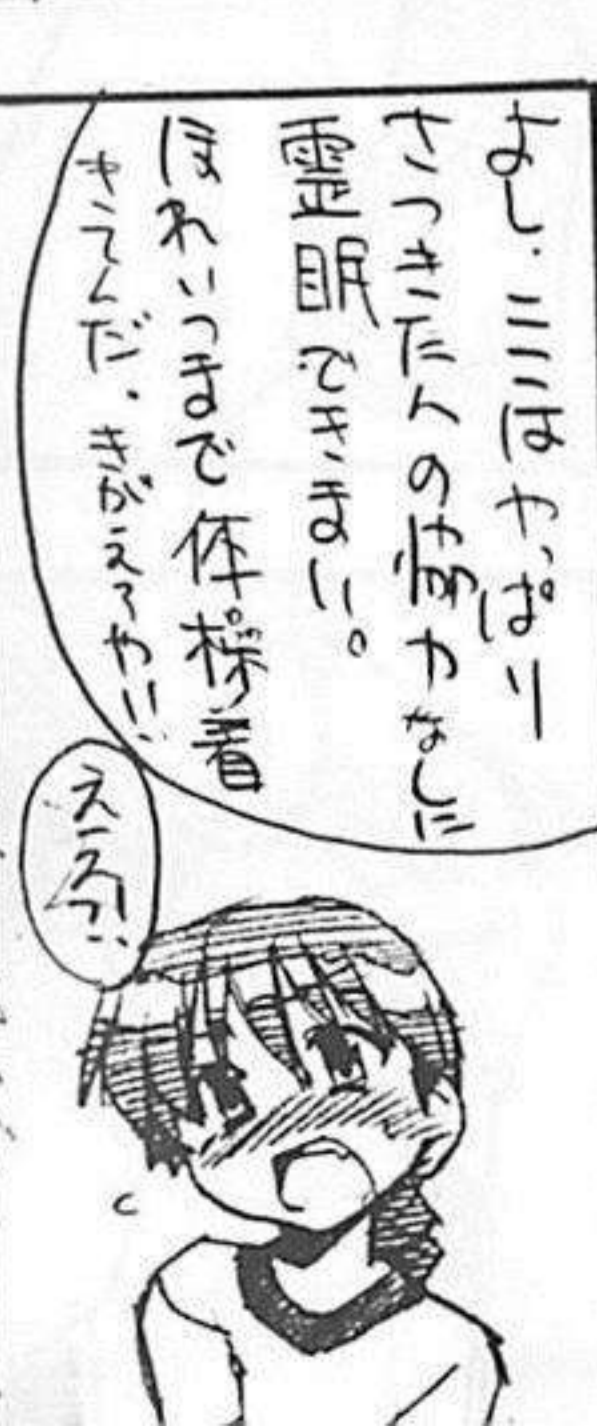 よし、ここはやっぱり
さつきたんの協力なしに
霊眠できまい。
ほれいつまで体操着
きてんだ、きがえてやい!
ええっ!